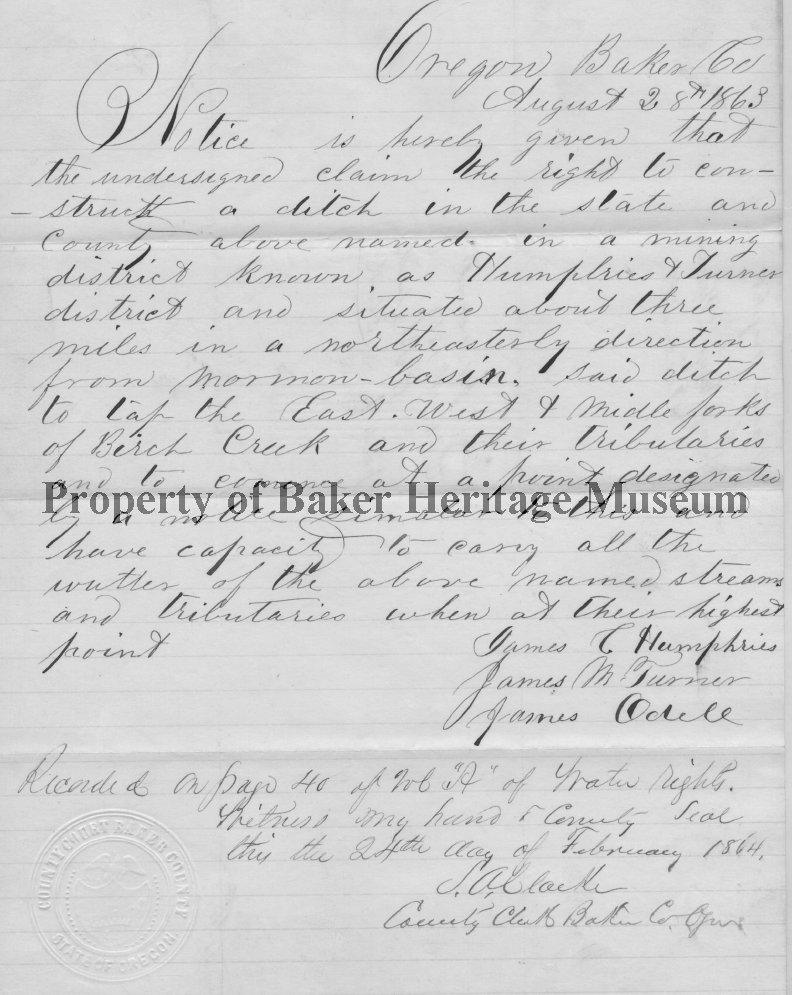 Oregon Baker Co
August 28th 1863
Notice is hereby given that
the undersigned claim the right to con-
-struct a ditch in the state and
County above named. in a mining
district known as Humphries & Turner
district and situated about three
miles in a northeasterly direction
from Mormon-basin. said ditch
to tap the East. West & Midle forks
of Birch Creek and their tributaries
and to comence at a point designated
Property of Baker Heritage Museum
by a notice simalar to this and
have capacity to carry all the
watter of the above named streams
and tributaries when at their highest
point
James C Humphries
James M Turner
James Odell
Recorded on page 40 of Vol "A" of Water rights.
Witness my hand & County Seal
this the 24th day of February 1864.
S. A. Clarke
County Clerk Baker Co. Ogn.
COUNTY COURT BAKER COUNTY
STATE OF OREGON